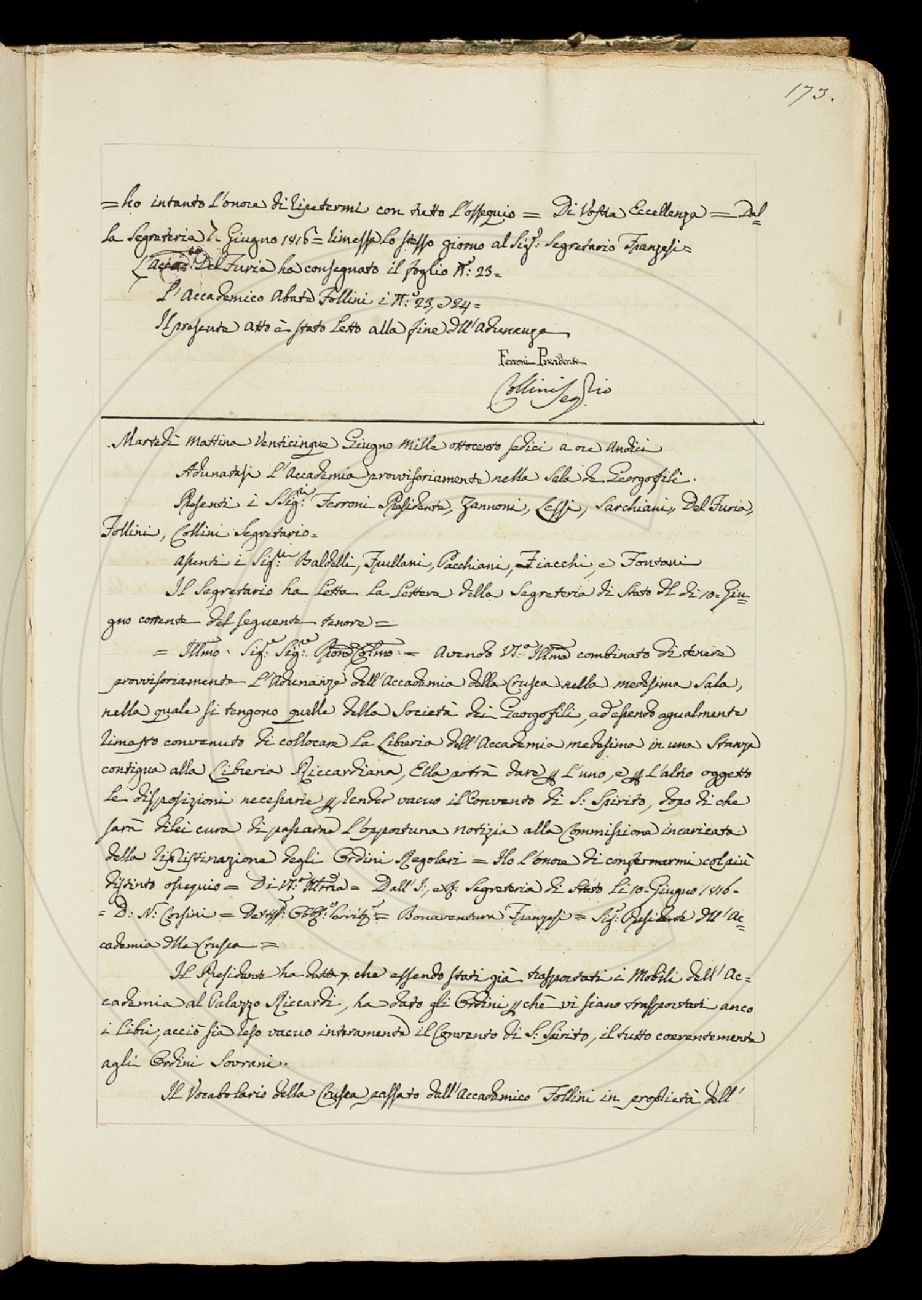 173.
= ho intanto l'onore di ripetermi con tutto l'ossequio = Di Vostra Eccellenza = Dal=
la Segreteria 7. Giugno 1816 = rimessa lo stesso giorno al Sigr. Segretario Franzesi =
L'Accad.co Del Furia ha consegnato il foglio N.º 23 =
L'Accademico Abate Follini i N.º 23, e 24 =
Il presente atto è stato letto alla fine dell'Adunanza
Ferroni Presidente
Collini Seg.rio
Martedì mattina Venticinque Giugno mille ottocento sedici a ore Undici
Adunatasi l'Accademia provvisoriamente nella Sala de Georgofili.
Presenti i SSig.ri Ferroni Presidente, Zannoni, Lessi, Sarchiani, Del Furia,
Follini, Collini Segretario =
assenti i Sig.ri Baldelli, Fiullani, Pacchiani, Fiacchi, e Fontani
Il Segretario ha letta la lettera della Segreteria di Stato del dì 10. Giu=
gno corrente del seguente tenore =
= Illmo. Sig.e Sig.re Pron Colmo. = Avendo V.S. Illma combinato di tenere
provvisoriamente l'Adunanze dell'Accademia della Crusca nella medesima Sala,
nella quale si tengono quelle della Società dei Georgofili, ed essendo egualmente
rimasto convenuto di collocare la Libreria dell'Accademia medesima in una Stanza
contigua alla Libreria Riccardiana, Ella potrà dare per l'uno, e per l'altro oggetto
le disposizioni necessarie per render vacuo il Convento di S: Spirito, dopo di che
sarà di lei cura di passarne l'opportuna notizia alla Commissione incaricata
della ripristinazione degli Ordini Regolari = Ho l'onore di confermarmi col più
distinto ossequio = Di V.S. Illma = Dall'I: e R: Segreteria di Stato li 10. Giugno 1816 =
= D: N: Corsini = Bonaventura Franzesi = Sig.r Presidente dell'Ac=
cademia della Crusca =
Il Presidente ha detto, che essendo stati già trasportati i Mobili dell'Ac=
cademia al Palazzo Riccardi, ha dato gli Ordini perchè vi siano trasportati anco
i libri, acciò sia reso vacuo interamente il Convento di S: Spirito, il tutto coerentemente
agli Ordini Sovrani.
Il Vocabolario della Crusca passato dall'Accademico Follini in proprietà dell'